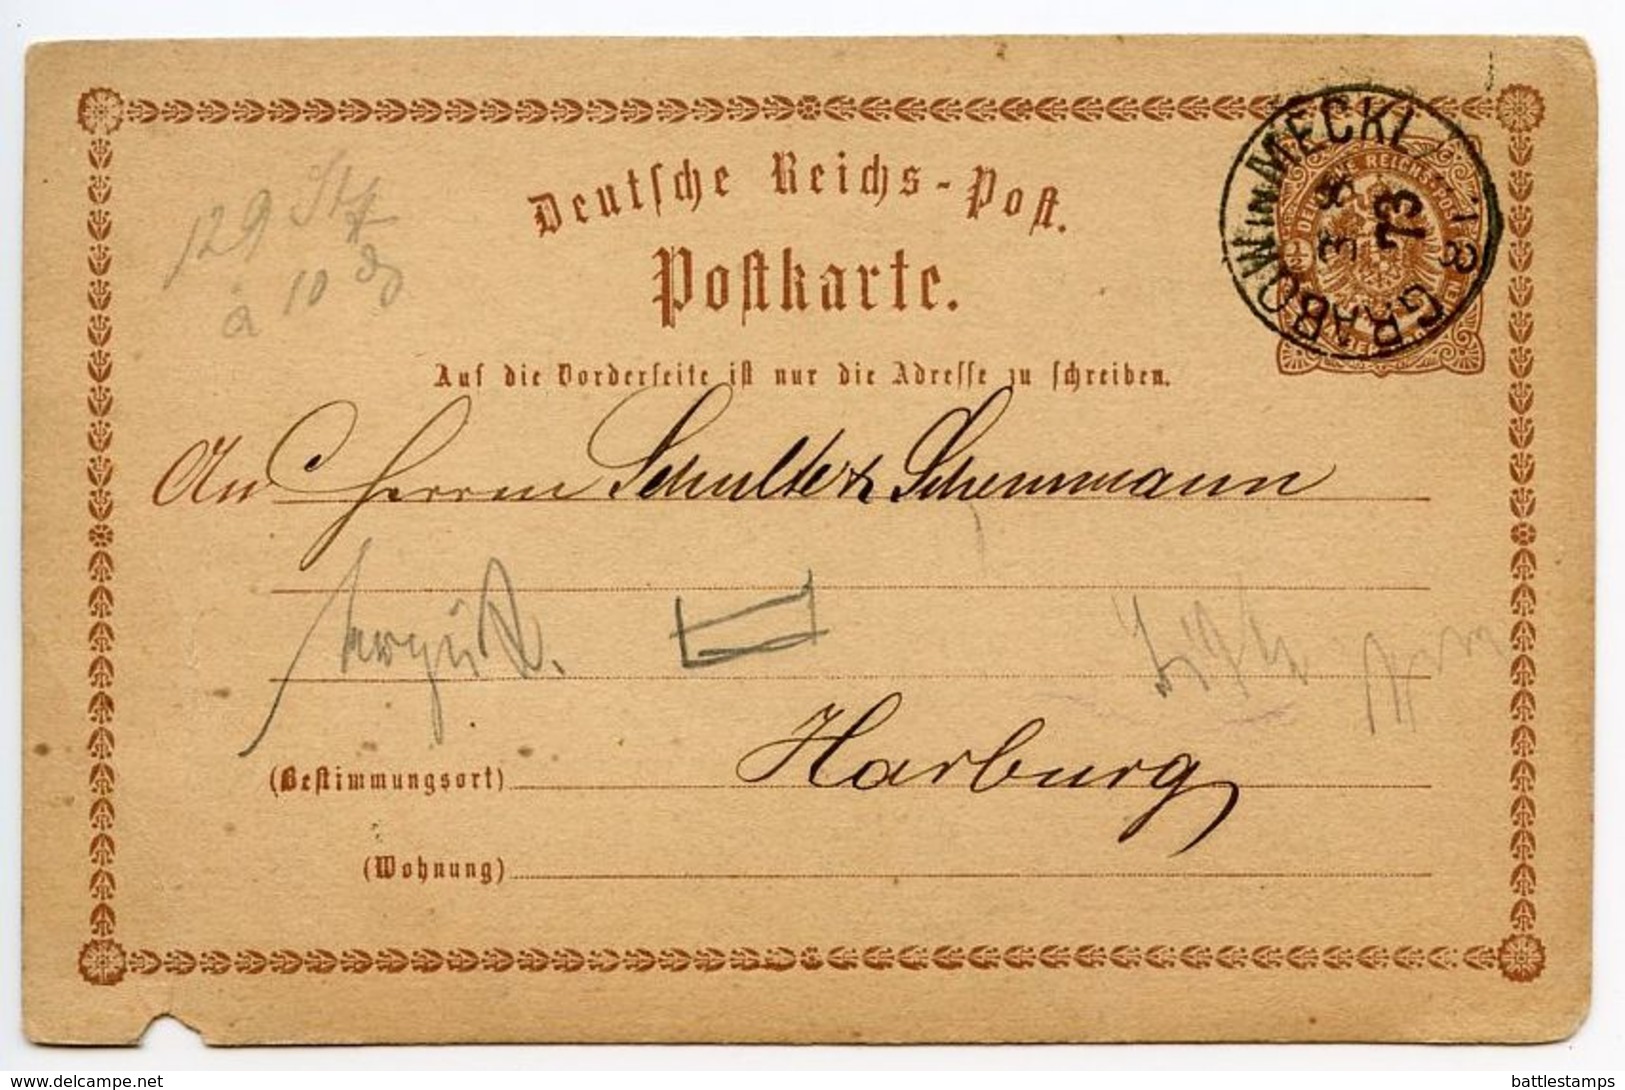 129 Stk
à 10 ₰
Deutsche Reichs-Post.
Postkarte.
GRABOW in MECKL
73
Auf die Vorderseite ist nur die Adresse zu schreiben.
An Herrn Schulte & Schemmann
(Bestimmungsort) Harburg
(Wohnung)
delcampe.net
battlestamps